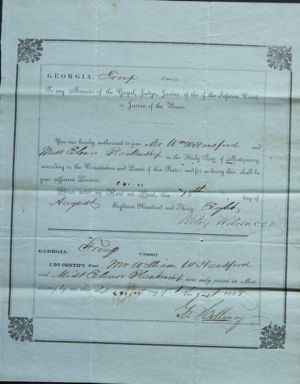 GEORGIA. Troup County.
To any Minister of the Gospel, Judge, Justice of the of the Inferior Court,
or Justice of the Peace.
You are hereby authorized to join Mr Wm W Hansford and
Miss Elinor Blankenship in the Holy State of Matrimony,
according to the Constitution and Laws of this State and for so doing this shall be
your sufficient License.
Given under my Hand and Seal, this day of
August Eighteen Hundred and Thirty Eight
GEORGIA. Troup County
I DO CERTIFY that Mr William W Hansford
and Miss Elinor Blankenship were duly joined in Mat-
rimony by me this day of August 1838.